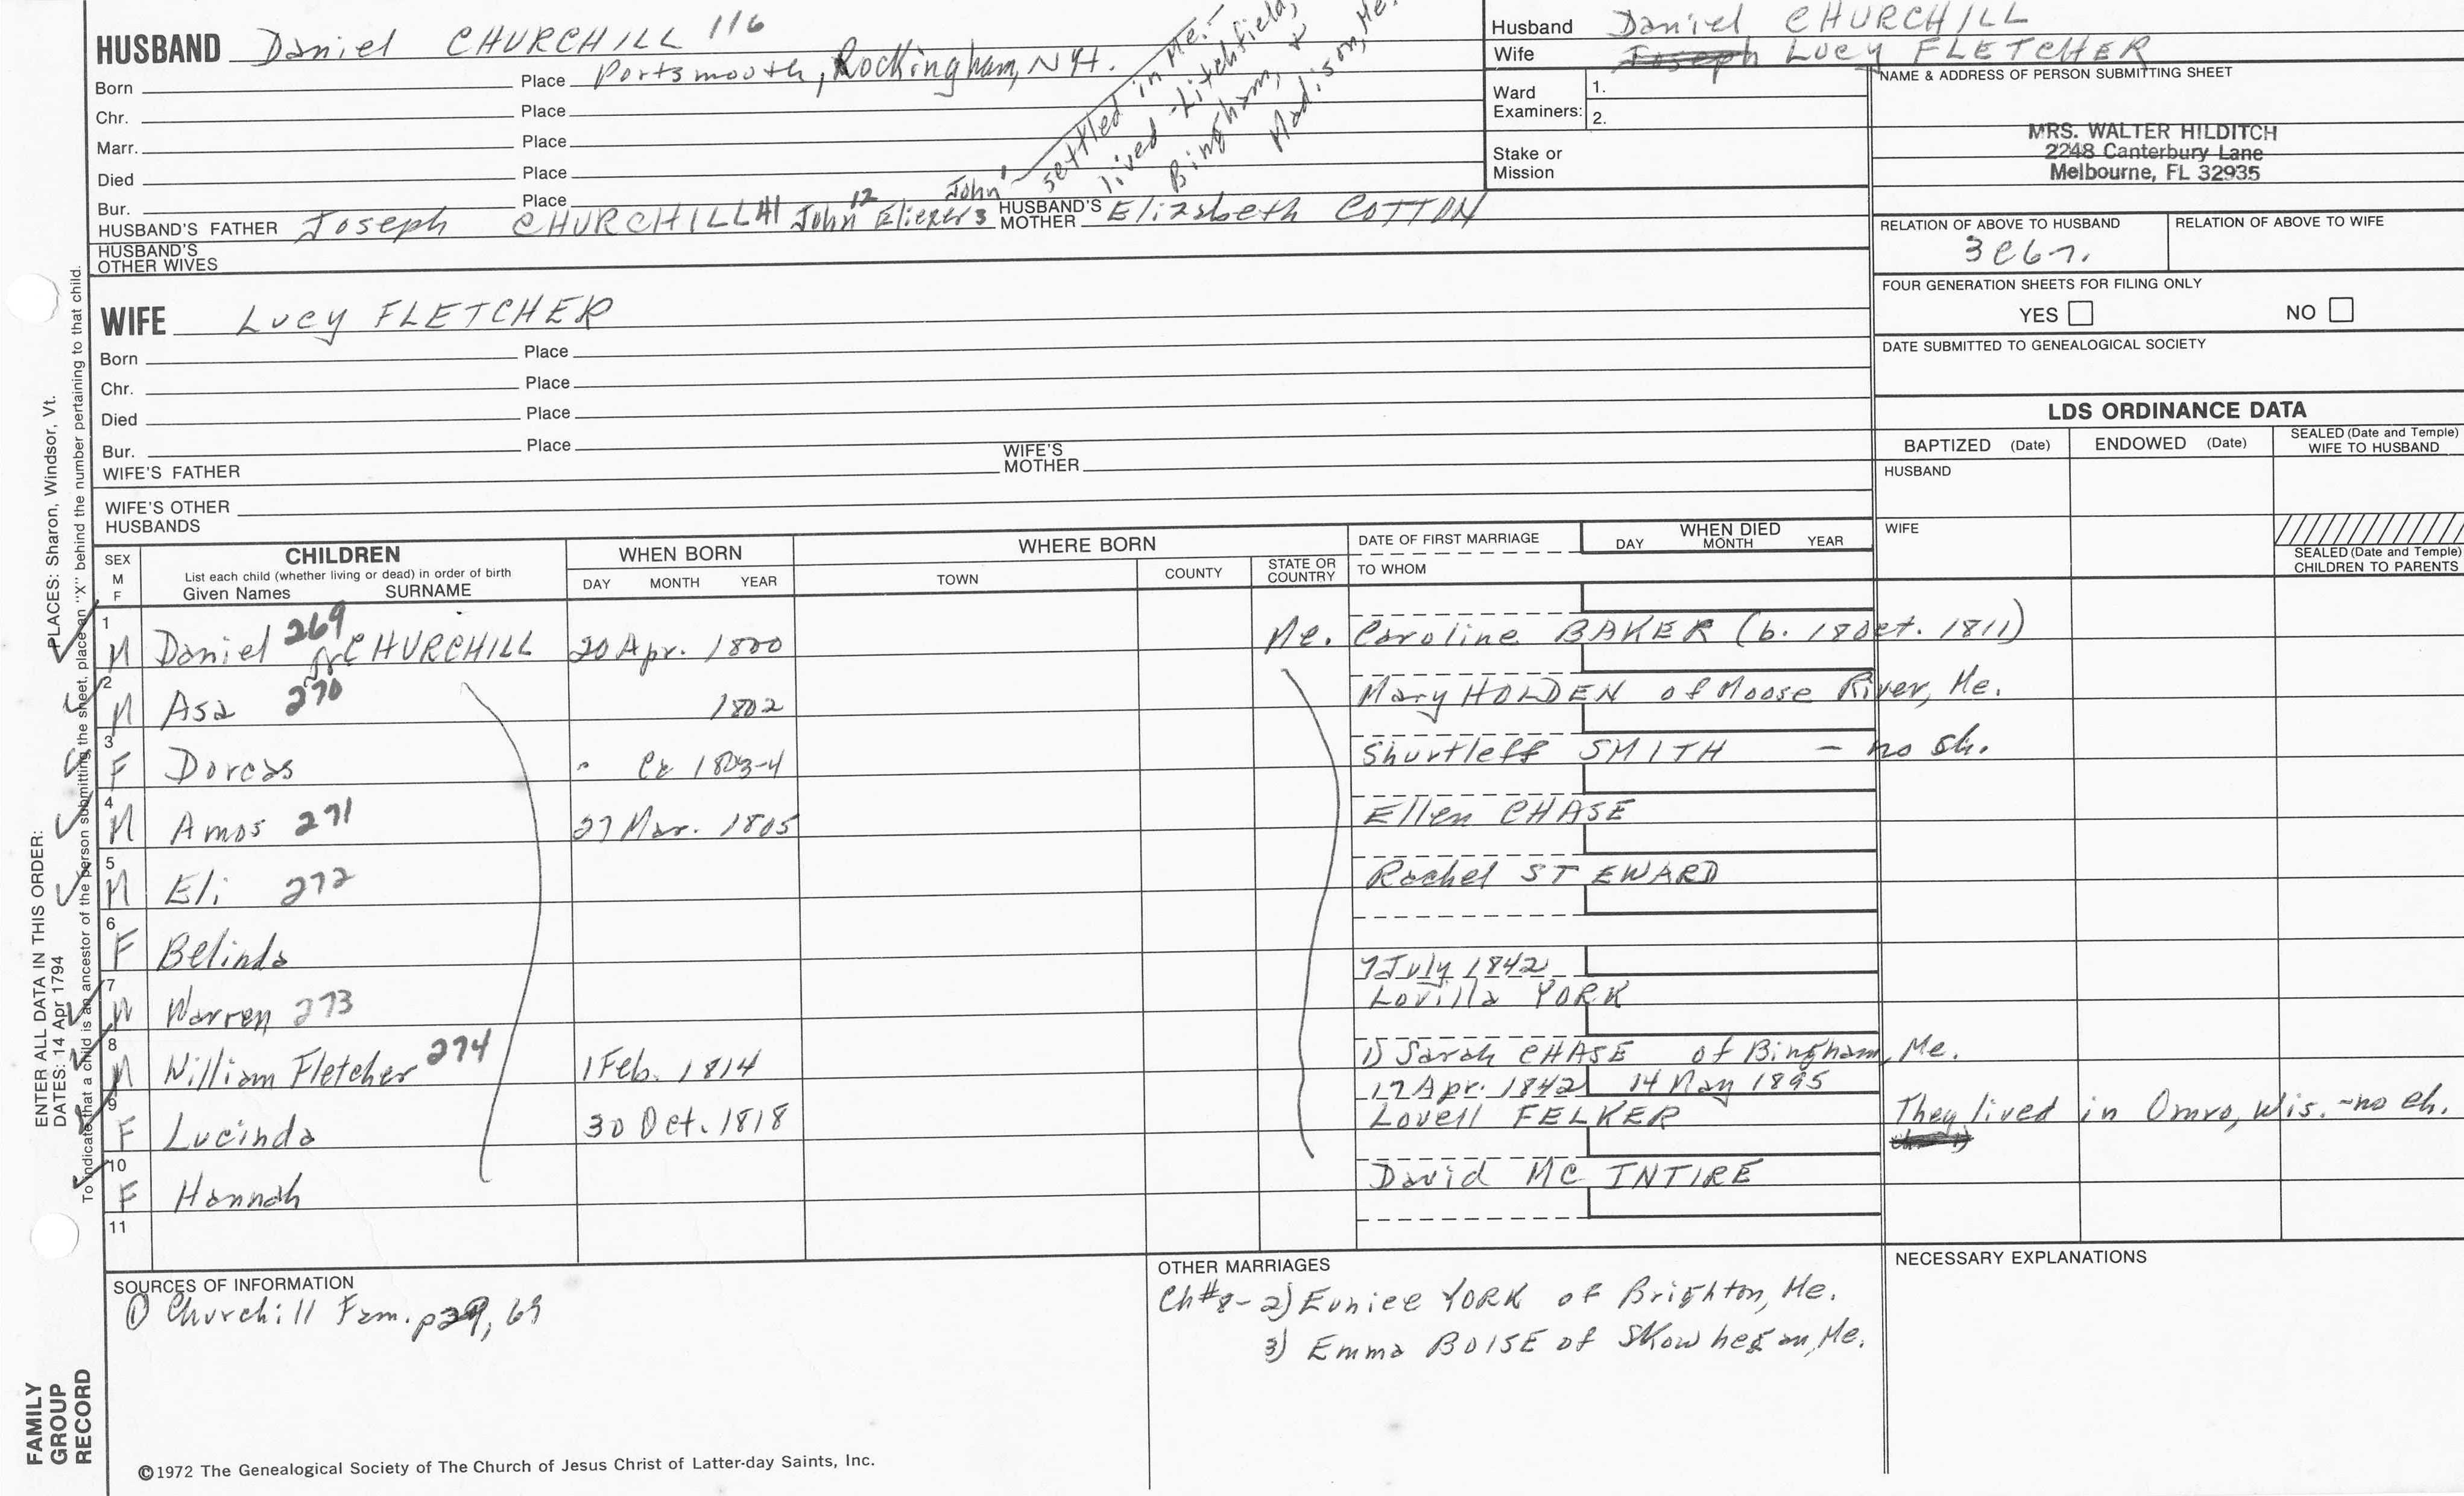 HUSBAND Daniel CHURCHILL 116
Born Place Portsmouth, Rockingham, NH.
Chr. Place
Marr. Place
Died Place
Bur. Place
settled in Me.
lived Litchfield,
Bingham, &
Madison, Me.
HUSBAND'S FATHER Joseph CHURCHILL 41 John 12 Eliezer 3 John 1 HUSBAND'S MOTHER Elizabeth COTTON
HUSBAND'S OTHER WIVES
WIFE Lucy FLETCHER
Born Place
Chr. Place
Died Place
Bur. Place
WIFE'S FATHER WIFE'S MOTHER
WIFE'S OTHER HUSBANDS
Husband Daniel CHURCHILL
Wife Joseph Lucy FLETCHER
Ward Examiners: 1.
2.
Stake or Mission
NAME & ADDRESS OF PERSON SUBMITTING SHEET
MRS. WALTER HILDITCH
2248 Canterbury Lane
Melbourne, FL 32935
RELATION OF ABOVE TO HUSBAND RELATION OF ABOVE TO WIFE
FOUR GENERATION SHEETS FOR FILING ONLY
YES NO
DATE SUBMITTED TO GENEALOGICAL SOCIETY
LDS ORDINANCE DATA
BAPTIZED (Date) ENDOWED (Date) SEALED (Date and Temple) WIFE TO HUSBAND
HUSBAND
WIFE
SEALED (Date and Temple) CHILDREN TO PARENTS
SEX M F CHILDREN List each child (whether living or dead) in order of birth Given Names SURNAME WHEN BORN DAY MONTH YEAR WHERE BORN TOWN COUNTY STATE OR COUNTRY DATE OF FIRST MARRIAGE TO WHOM WHEN DIED DAY MONTH YEAR
1 M Daniel Jr 269 CHURCHILL 20 Apr. 1800 Me. Caroline BAKER (b. 18 Oct. 1811)
2 M Asa 270 1802 Mary HOLDEN of Moose River, Me.
3 F Dorcas Ca 1803-4 Shurtleff SMITH - no ch.
4 M Amos 271 27 Mar. 1805 Ellen CHASE
5 M Eli 272 Rachel STEWARD
6 F Belinda
7 M Warren 273 7 July 1842 Lovilla YORK
8 M William Fletcher 274 1 Feb. 1814 1) Sarah CHASE of Bingham, Me.
9 F Lucinda 30 Oct. 1818 17 Apr. 1842 14 May 1895 Lovell FELKER They lived in Omro, Wis. - no ch.
10 F Hannah David MC INTIRE
11
SOURCES OF INFORMATION
① Churchill Fam. p 29, 69
OTHER MARRIAGES
Ch#8- 2) Eunice YORK of Brighton, Me.
3) Emma BOISE of Skowhegan, Me.
NECESSARY EXPLANATIONS
©1972 The Genealogical Society of The Church of Jesus Christ of Latter-day Saints, Inc.
FAMILY GROUP RECORD
ENTER ALL DATA IN THIS ORDER:
DATES: 14 Apr 1794 PLACES: Sharon, Windsor, Vt.
To indicate that a child is an ancestor of the person submitting the sheet, place an "X" behind the number pertaining to that child.